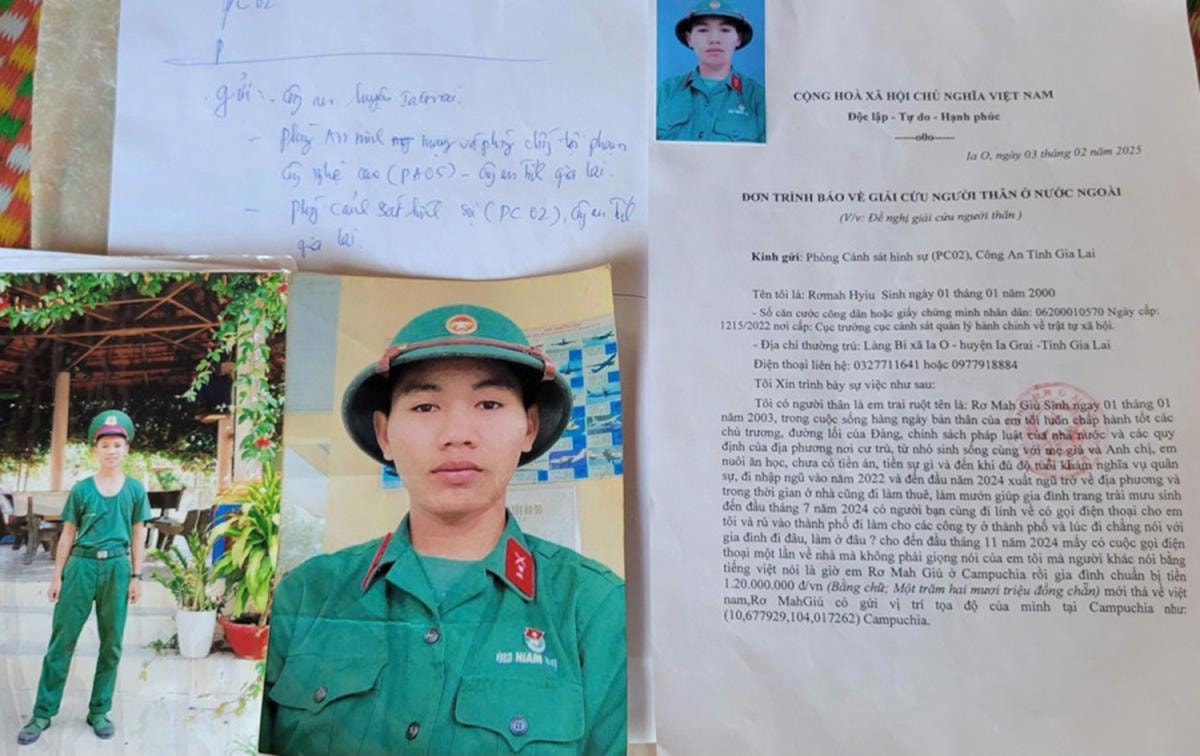 PC02
gửi: - Công an huyện Ia Grai.
- phòng An ninh mạng và phòng chống tội phạm
Công nghệ cao (PA05) - Công an Tỉnh gia lai.
- phòng Cảnh sát hình sự (PC02), Công an Tỉnh
gia lai.
CỘNG HOÀ XÃ HỘI CHỦ NGHĨA VIỆT NAM
Độc lập - Tự do - Hạnh phúc
------o0o------
Ia O, ngày 03 tháng 02 năm 2025
ĐƠN TRÌNH BÁO VỀ GIẢI CỨU NGƯỜI THÂN Ở NƯỚC NGOÀI
(V/v: Đề nghị giải cứu người thân )
Kính gửi: Phòng Cảnh sát hình sự (PC02), Công An Tỉnh Gia Lai
Tên tôi là: Rơmah Hyiu Sinh ngày 01 tháng 01 năm 2000
- Số căn cước công dân hoặc giấy chứng minh nhân dân: 06200010570 Ngày cấp:
1215/2022 nơi cấp: Cục trưởng cục cảnh sát quản lý hành chính về trật tự xã hội.
- Địa chỉ thường trú: Làng Bi xã Ia O - huyện Ia Grai -Tỉnh Gia Lai
Điện thoại liên hệ: 0327711641 hoặc 0977918884
Tôi Xin trình bày sự việc như sau:
Tôi có người thân là em trai ruột tên là: Rơ Mah Giú Sinh ngay 01 tháng 01
năm 2003, trong cuộc sống hàng ngày bản thân của em tôi luôn chấp hành tốt các
chủ trương, đường lối của Đảng, chính sách pháp luật của nhà nước và các quy
định của địa phương nơi cư trú, từ nhỏ sinh sống cùng với mẹ già và Anh chị, em
nuôi ăn học, chưa có tiền án, tiền sự gì và đến khi đủ độ tuổi khám nghĩa vụ quân
sự, đi nhập ngũ vào năm 2022 và đến đầu năm 2024 xuất ngũ trở về địa phương và
trong thời gian ở nhà cũng đi làm thuê, làm mướn giúp gia đình trang trải mưu sinh
đến đầu tháng 7 năm 2024 có người bạn cùng đi lính về có gọi điện thoại cho em
tôi và rủ vào thành phố đi làm cho các công ty ở thành phố và lúc đi chẳng nói với
gia đình đi đâu, làm ở đâu ? cho đến đầu tháng 11 năm 2024 mấy có cuộc gọi điện
thoại một lần về nhà mà không phải giọng nói của em tôi mà người khác nói bằng
tiếng việt nói là giờ em Rơ Mah Giú ở Campuchia rồi gia đình chuẩn bị tiền
1.20.000.000 đ/vn (Bằng chữ; Một trăm hai mươi triệu đồng chẵn) mới thả về việt
nam,Rơ MahGiú có gửi vị trí tọa độ của mình tại Campuchia như:
(10,677929,104,017262) Campuchia.